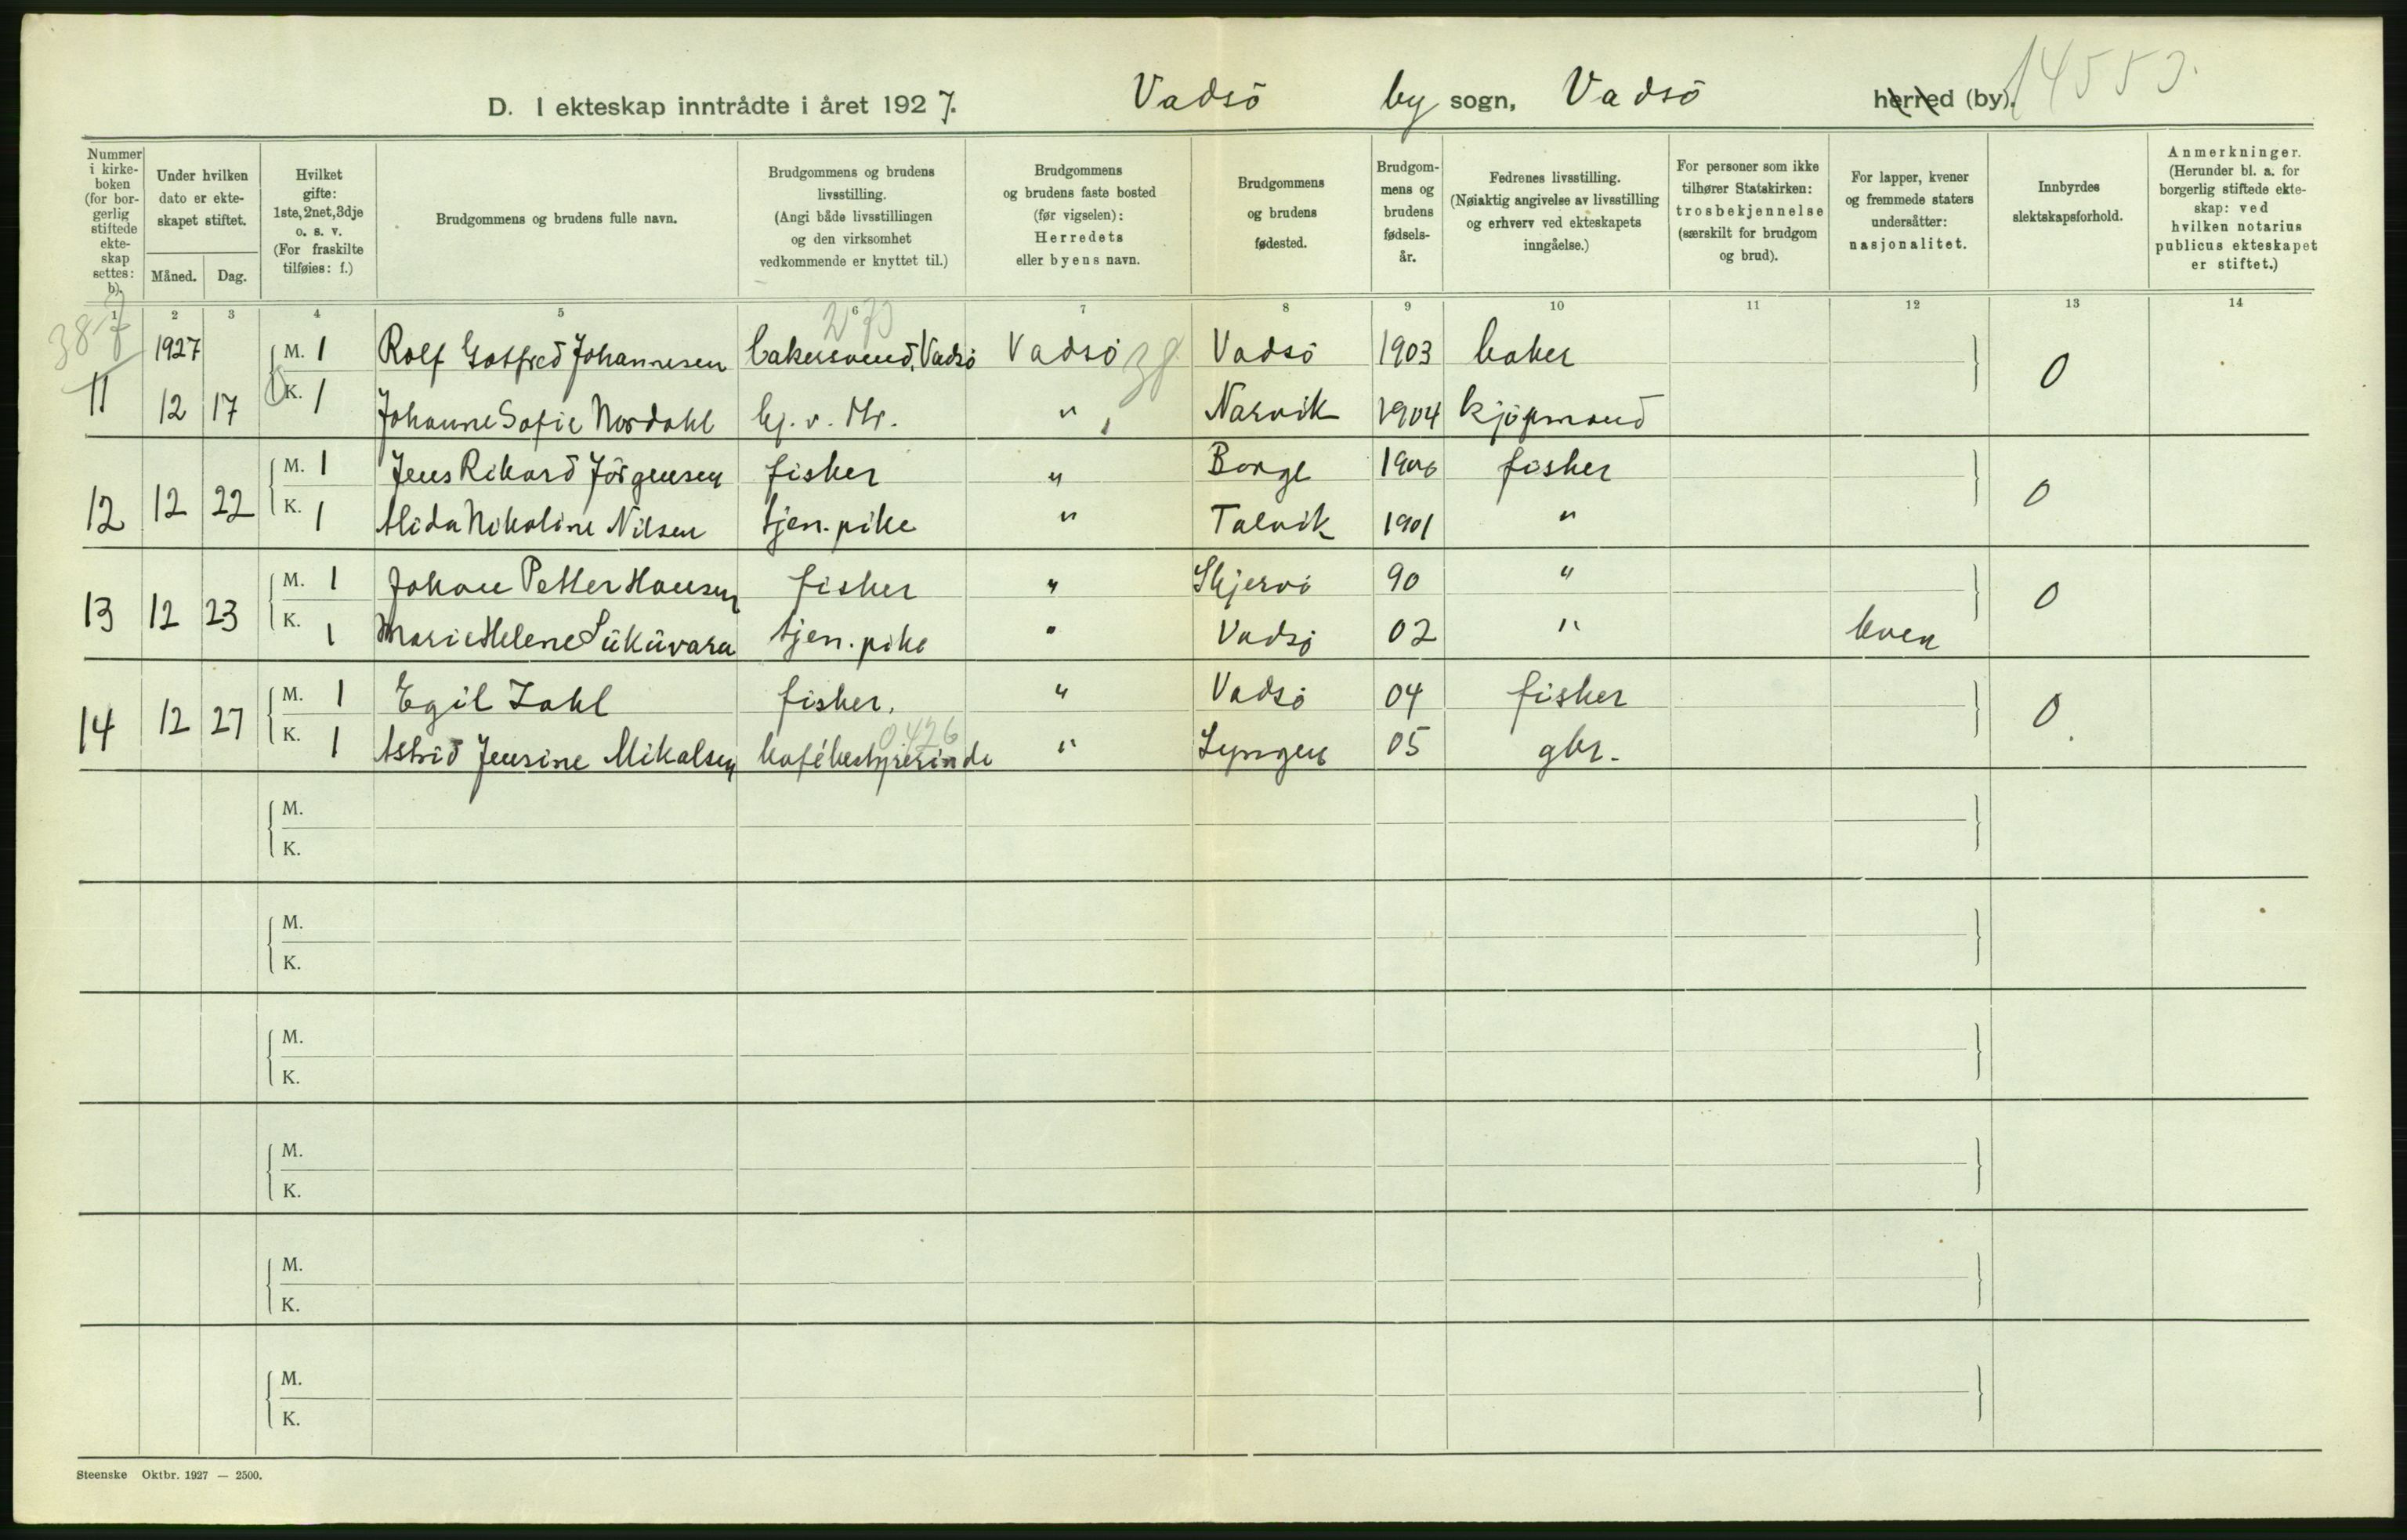 D. I ekteskap inntrådte i året 1927. Vadsö by sogn, Vadsö herred (by). 14553.
Nummer i kirkeboken (for borgerlig stiftede ekteskap settes: b).
Under hvilken dato er ekteskapet stiftet.
Måned. Dag.
Hvilket gifte: 1ste, 2net, 3dje o. s. v. (For fraskilte tilføies: f.)
Brudgommens og brudens fulle navn.
Brudgommens og brudens livsstilling. (Angi både livsstillingen og den virksomhet vedkommende er knyttet til.)
Brudgommens og brudens faste bosted (før vigselen): Herredets eller byens navn.
Brudgommens og brudens fødested.
Brudgommens og brudens fødselsår.
Fedrenes livsstilling. (Nøiaktig angivelse av livsstilling og erhverv ved ekteskapets inngåelse.)
For personer som ikke tilhører Statskirken: trosbekjennelse (særskilt for brudgom og brud).
For lapper, kvener og fremmede staters undersåtter: nasjonalitet.
Innbyrdes slektskapsforhold.
Anmerkninger. (Herunder bl. a. for borgerlig stiftede ekteskap: ved hvilken notarius publicus ekteskapet er stiftet.)
1 2 3 4 5 6 7 8 9 10 11 12 13 14
387 1927 M. 1 Rolf Gotfred Johannesen bakersvend, Vadsö Vadsö Vadsö 1903 baker 0
11 12 17 K. 1 Johanne Sofie Nordahl hj. v. Mr. " Narvik 1904 kjöpmand
M. 1 Jens Rikard Jörgensen fisker " Borge 1906 fisker 0
12 12 22 K. 1 Alida Nikoline Nilsen tjen. pike " Talvik 1901 "
M. 1 Johan Petter Hansen fisker " Skjervö 90 " 0
13 12 23 K. 1 Marie Helene Süküvara tjen. pike " Vadsö 02 " kven
M. 1 Egil Zahl fisker. " Vadsö 04 fisker 0
14 12 27 K. 1 Astrid Jensine Mikalsen kafébestyrerinde 0426 " Lyngen 05 gbr.
M.
K.
M.
K.
M.
K.
M.
K.
M.
K.
M.
K.
Steenske Oktbr. 1927 — 2500.